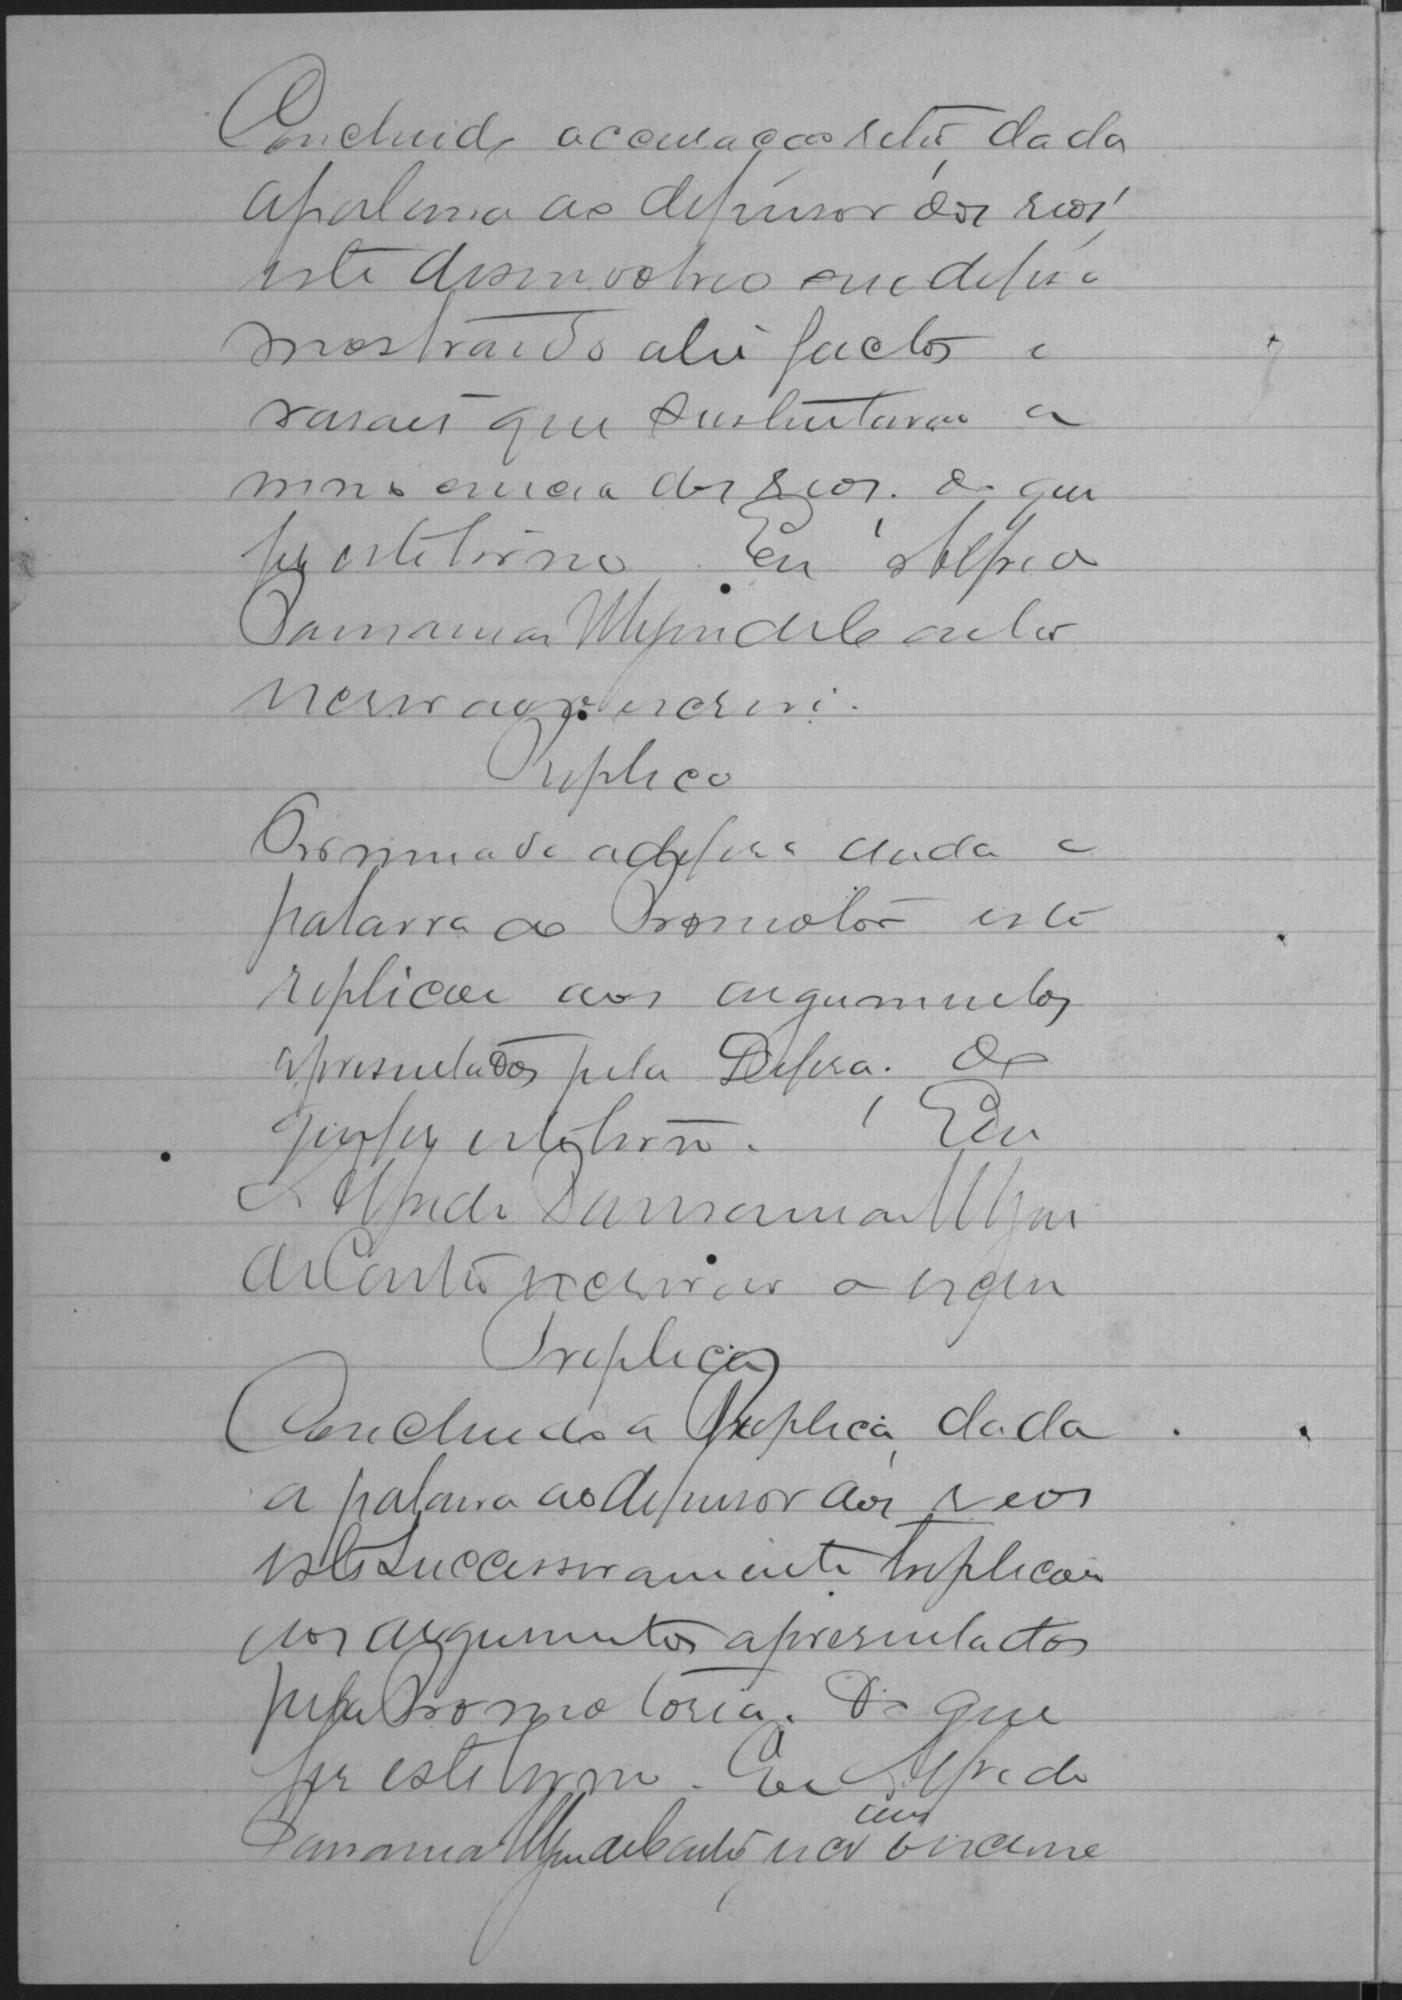 Concluida accusação dada
a palavra ao defensor dos reos,
este desenvolveo sua defesa
mostrando factos e
rasões que sustentavão a
innocencia dos reos. Do que
fiz este termo. Eu Alfredo
escrivão que escrevi.
Replica
Terminada a defesa dada a
palavra ao Promotor este
replicou aos argumentos
apresentados pela Defesa. Do
que fiz este termo. Eu
Alfredo
escrivão o escrevi
Treplica
Concluida a Replica, dada
a palavra ao defensor dos reos
este successivamente treplicou
aos argumentos apresentados
pela Promotoria. Do que
fiz este termo. Eu Alfredo